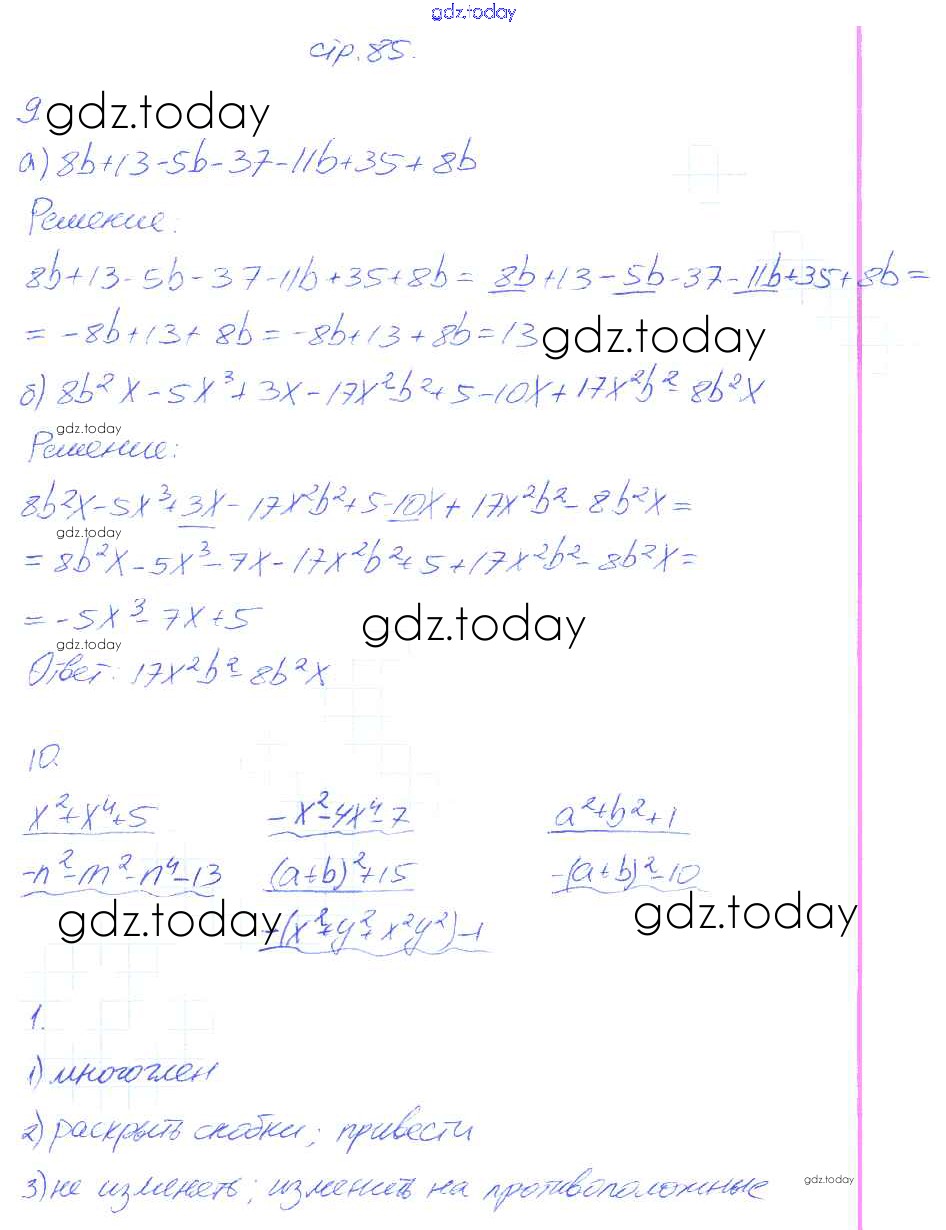 gdz.today
стр. 85.
9 gdz.today
а) 8b+13-5b-37-11b+35+8b
Решение:
8b+13-5b-37-11b+35+8b= 8b+13-5b-37-11b+35+8b=
= -8b+13+8b=-8b+13+8b=13 gdz.today
б) 8b²x-5x³+3x-17x²b²+5-10x+17x²b²-8b²x
gdz.today
Решение:
8b²x-5x³+3x-17x²b²+5-10x+17x²b²-8b²x=
gdz.today
=8b²x-5x³-7x-17x²b²+5+17x²b²-8b²x=
=-5x³-7x+5 gdz.today
gdz.today
Ответ: 17x²b²-8b²x
10.
x²+x⁴+5 -x²-4x⁴-7 a²+b²+1
-n²-m²-n⁴-13 (a+b)²+15 -(a+b)²-10
gdz.today -(x²+y²+x²y²)-1 gdz.today
1.
1) многочлен
2) раскрыть скобки; привести
3) не изменять; изменить на противоположные gdz.today